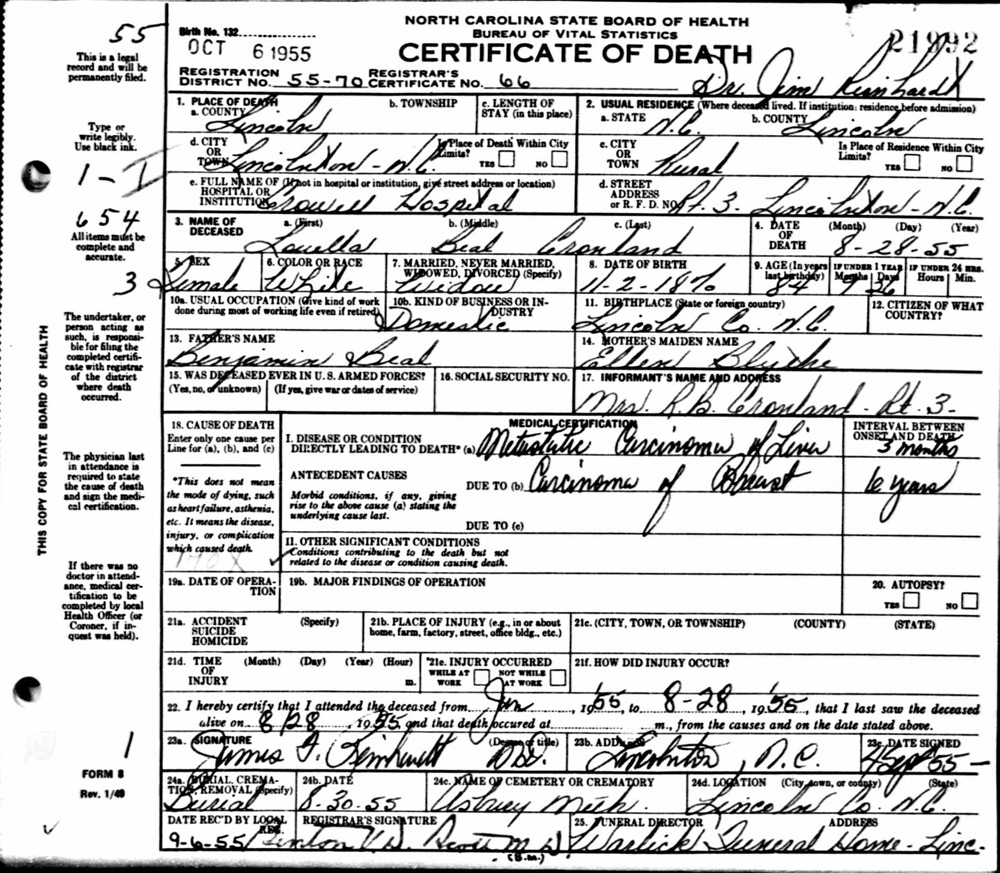 NORTH CAROLINA STATE BOARD OF HEALTH
BUREAU OF VITAL STATISTICS
CERTIFICATE OF DEATH
55
Birth No. 132
OCT 6 1955
21992
Dr. Jim Reinhardt
REGISTRATION DISTRICT No. 55-70 REGISTRAR'S CERTIFICATE No. 66
This is a legal record and will be permanently filed.
Type or write legibly. Use black ink.
1-I
654
All items must be complete and accurate.
3
The undertaker, or person acting as such, is responsible for filing the completed certificate with registrar of the district where death occurred.
The physician last in attendance is required to state the cause of death and sign the medical certification.
If there was no doctor in attendance, medical certification to be completed by local Health Officer (or Coroner, if inquest was held).
THIS COPY FOR STATE BOARD OF HEALTH
1
FORM 8
Rev. 1/49
1. PLACE OF DEATH
a. COUNTY Lincoln
b. TOWNSHIP
c. LENGTH OF STAY (in this place)
2. USUAL RESIDENCE (Where deceased lived. If institution: residence before admission)
a. STATE N.C.
b. COUNTY Lincoln
d. CITY OR TOWN Lincolnton - N.C.
Is Place of Death Within City Limits?
YES NO
c. CITY OR TOWN Rural
Is Place of Residence Within City Limits?
YES NO
e. FULL NAME OF (If not in hospital or institution, give street address or location) HOSPITAL OR INSTITUTION Crowell Hospital
d. STREET ADDRESS or R. F. D. NO. Rt. 3. Lincolnton - N.C.
3. NAME OF DECEASED
a. (First) b. (Middle) c. (Last)
Louella Beal Cronland
4. DATE OF DEATH (Month) (Day) (Year)
8-28-55
5. SEX Female
6. COLOR OR RACE White
7. MARRIED, NEVER MARRIED, WIDOWED, DIVORCED (Specify) Widow
8. DATE OF BIRTH 11-2-1870
9. AGE (In years last birthday) 84
IF UNDER 1 YEAR Months Days 9 26
IF UNDER 24 HRS. Hours Min.
10a. USUAL OCCUPATION (Give kind of work done during most of working life even if retired)
Domestic
10b. KIND OF BUSINESS OR INDUSTRY
11. BIRTHPLACE (State or foreign country) Lincoln Co. N.C.
12. CITIZEN OF WHAT COUNTRY?
13. FATHER'S NAME Benjamin Beal
14. MOTHER'S MAIDEN NAME Ellen Blythe
15. WAS DECEASED EVER IN U. S. ARMED FORCES?
(Yes, no, or unknown) (If yes, give war or dates of service)
16. SOCIAL SECURITY NO.
17. INFORMANT'S NAME AND ADDRESS
Mrs. R.B. Cronland - Rt. 3-
18. CAUSE OF DEATH
Enter only one cause per Line for (a), (b), and (c)
*This does not mean the mode of dying, such as heart failure, asthenia, etc. It means the disease, injury, or complication which caused death.
170X
MEDICAL CERTIFICATION
INTERVAL BETWEEN ONSET AND DEATH
I. DISEASE OR CONDITION DIRECTLY LEADING TO DEATH* (a) Metastatic Carcinoma of Liver 3 months
ANTECEDENT CAUSES
Morbid conditions, if any, giving rise to the above cause (a) stating the underlying cause last.
DUE TO (b) Carcinoma of Breast 6 years
DUE TO (c)
II. OTHER SIGNIFICANT CONDITIONS
Conditions contributing to the death but not related to the disease or condition causing death.
19a. DATE OF OPERATION
19b. MAJOR FINDINGS OF OPERATION
20. AUTOPSY?
YES NO
21a. ACCIDENT SUICIDE HOMICIDE (Specify)
21b. PLACE OF INJURY (e.g., in or about home, farm, factory, street, office bldg., etc.)
21c. (CITY, TOWN, OR TOWNSHIP) (COUNTY) (STATE)
21d. TIME OF INJURY (Month) (Day) (Year) (Hour) m.
21e. INJURY OCCURRED
WHILE AT WORK NOT WHILE AT WORK
21f. HOW DID INJURY OCCUR?
22. I hereby certify that I attended the deceased from Jun, 1955, to 8-28, 1955, that I last saw the deceased
alive on 8/28, 1955 and that death occured at m., from the causes and on the date stated above.
23a. SIGNATURE (Degree or title)
James F. Reinhardt M.D.
23b. ADDRESS Lincolnton, N.C.
23c. DATE SIGNED 4 Sept 55-
24a. BURIAL, CREMATION, REMOVAL (Specify) Burial
24b. DATE 8-30-55
24c. NAME OF CEMETERY OR CREMATORY Asbury Meth.
24d. LOCATION (City, town, or county) (State) Lincoln Co. N.C.
DATE REC'D BY LOCAL REG. 9-6-55
REGISTRAR'S SIGNATURE Scott M.D.
(B.m.)
25. FUNERAL DIRECTOR ADDRESS
Warlick Funeral Home - Linc-